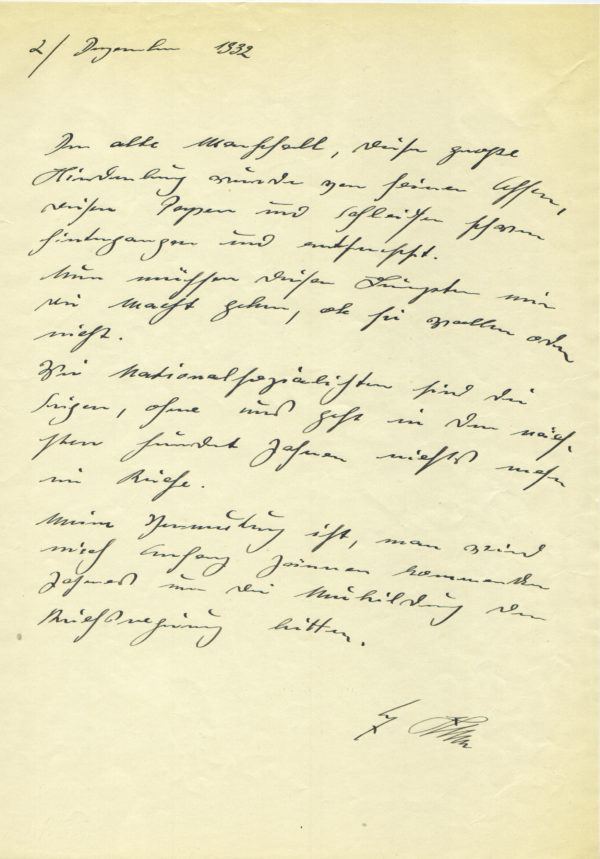 2/ Dezember 1932
Der alte Marschall, dieser große
Hindenburg wurde von seinen Affen,
diesen Papen und Schleicher schwer
hintergangen und
Nun müssen diese Lumpen mir
die Macht geben, ob sie wollen oder
nicht.
Wir Nationalsozialisten sind die
Sieger, ohne uns geht in den näch-
sten hundert Jahren nichts mehr
im Reiche.
Meine Vermutung ist, man wird
mich Anfang Jänner kommenden
Jahres um die Neubildung der
Reichsregierung bitten.